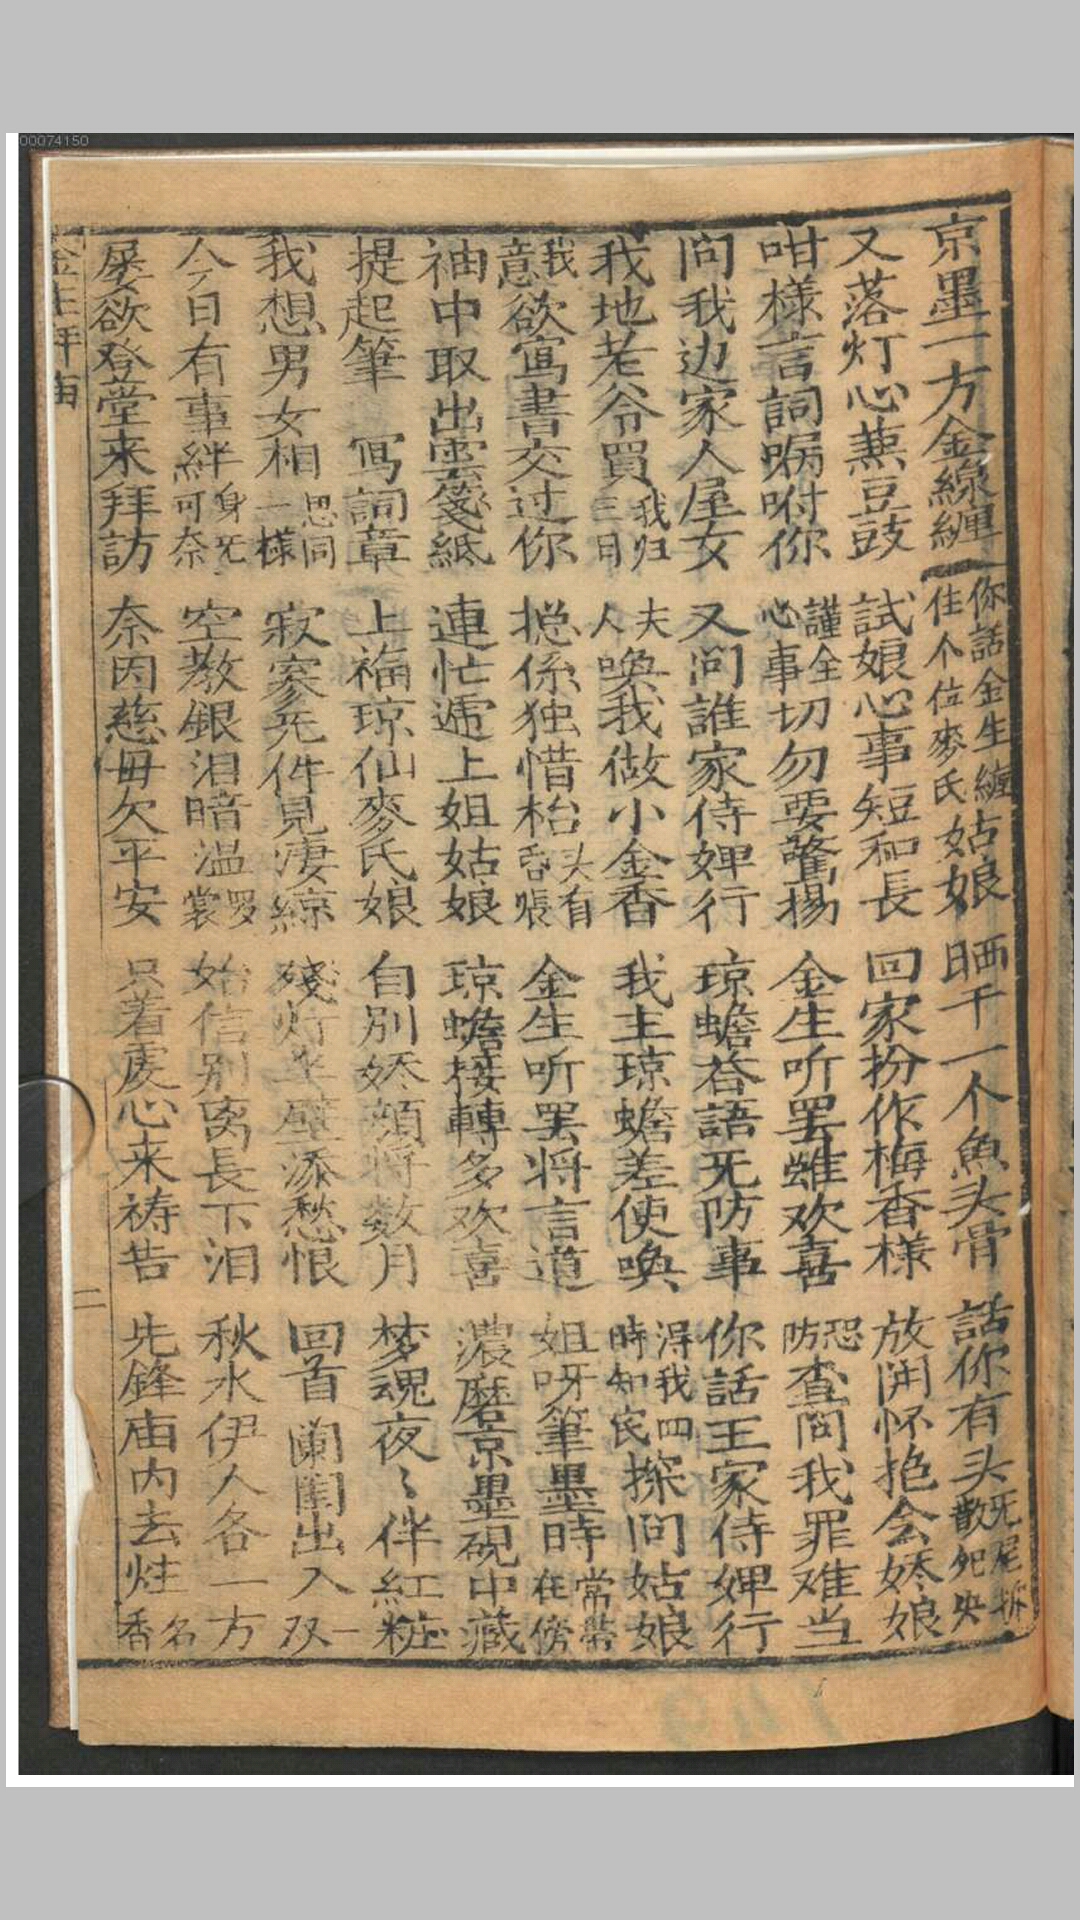 00074150
京墨一方金線纏 你話金生纏住个位麥氏姑娘 晒干一个魚头骨 話你有头无尾拆散鸳央
又落灯心蕉豆豉 試娘心事短和長 回家扮作梅香樣 放開怀抱会娇娘
咁樣言詞嘱咐你 謹全心事切勿要驚揚 金生听罢雖欢喜 恐防查問我罪难当
問我边家人屋女 又問誰家侍婢行 琼蟾答語无防事 你話王家侍婢行
我地老爷買我归三日 夫人喚我做小金香 我主琼蟾差使喚 淂我四時知宻探问姑娘
我意欲寫書交过你 揔係独惜枱头有吾帳 金生听罢将言道 姐呀筆墨時常帶在傍
袖中取出雲箋紙 連忙遞上姐姑娘 琼蟾接轉多欢喜 濃磨京墨硯中藏
提起筆 寫詞章 上福琼仙麥氏娘 自別娇顏将数月 梦魂夜〻伴紅粧
我想男女相思同一樣 寂寥无伴見淒綡 殘灯半壁添愁恨 回首 闌闺出入一双
今日有事絆身无可奈 空教銀泪暗温罗裳 始信別离長下泪 秋水伊人各一方
屡欲登堂来拜訪 奈因慈毋欠平安 只着虔心来祷告 先鋒庙内去炷名香
金生拜庙 二